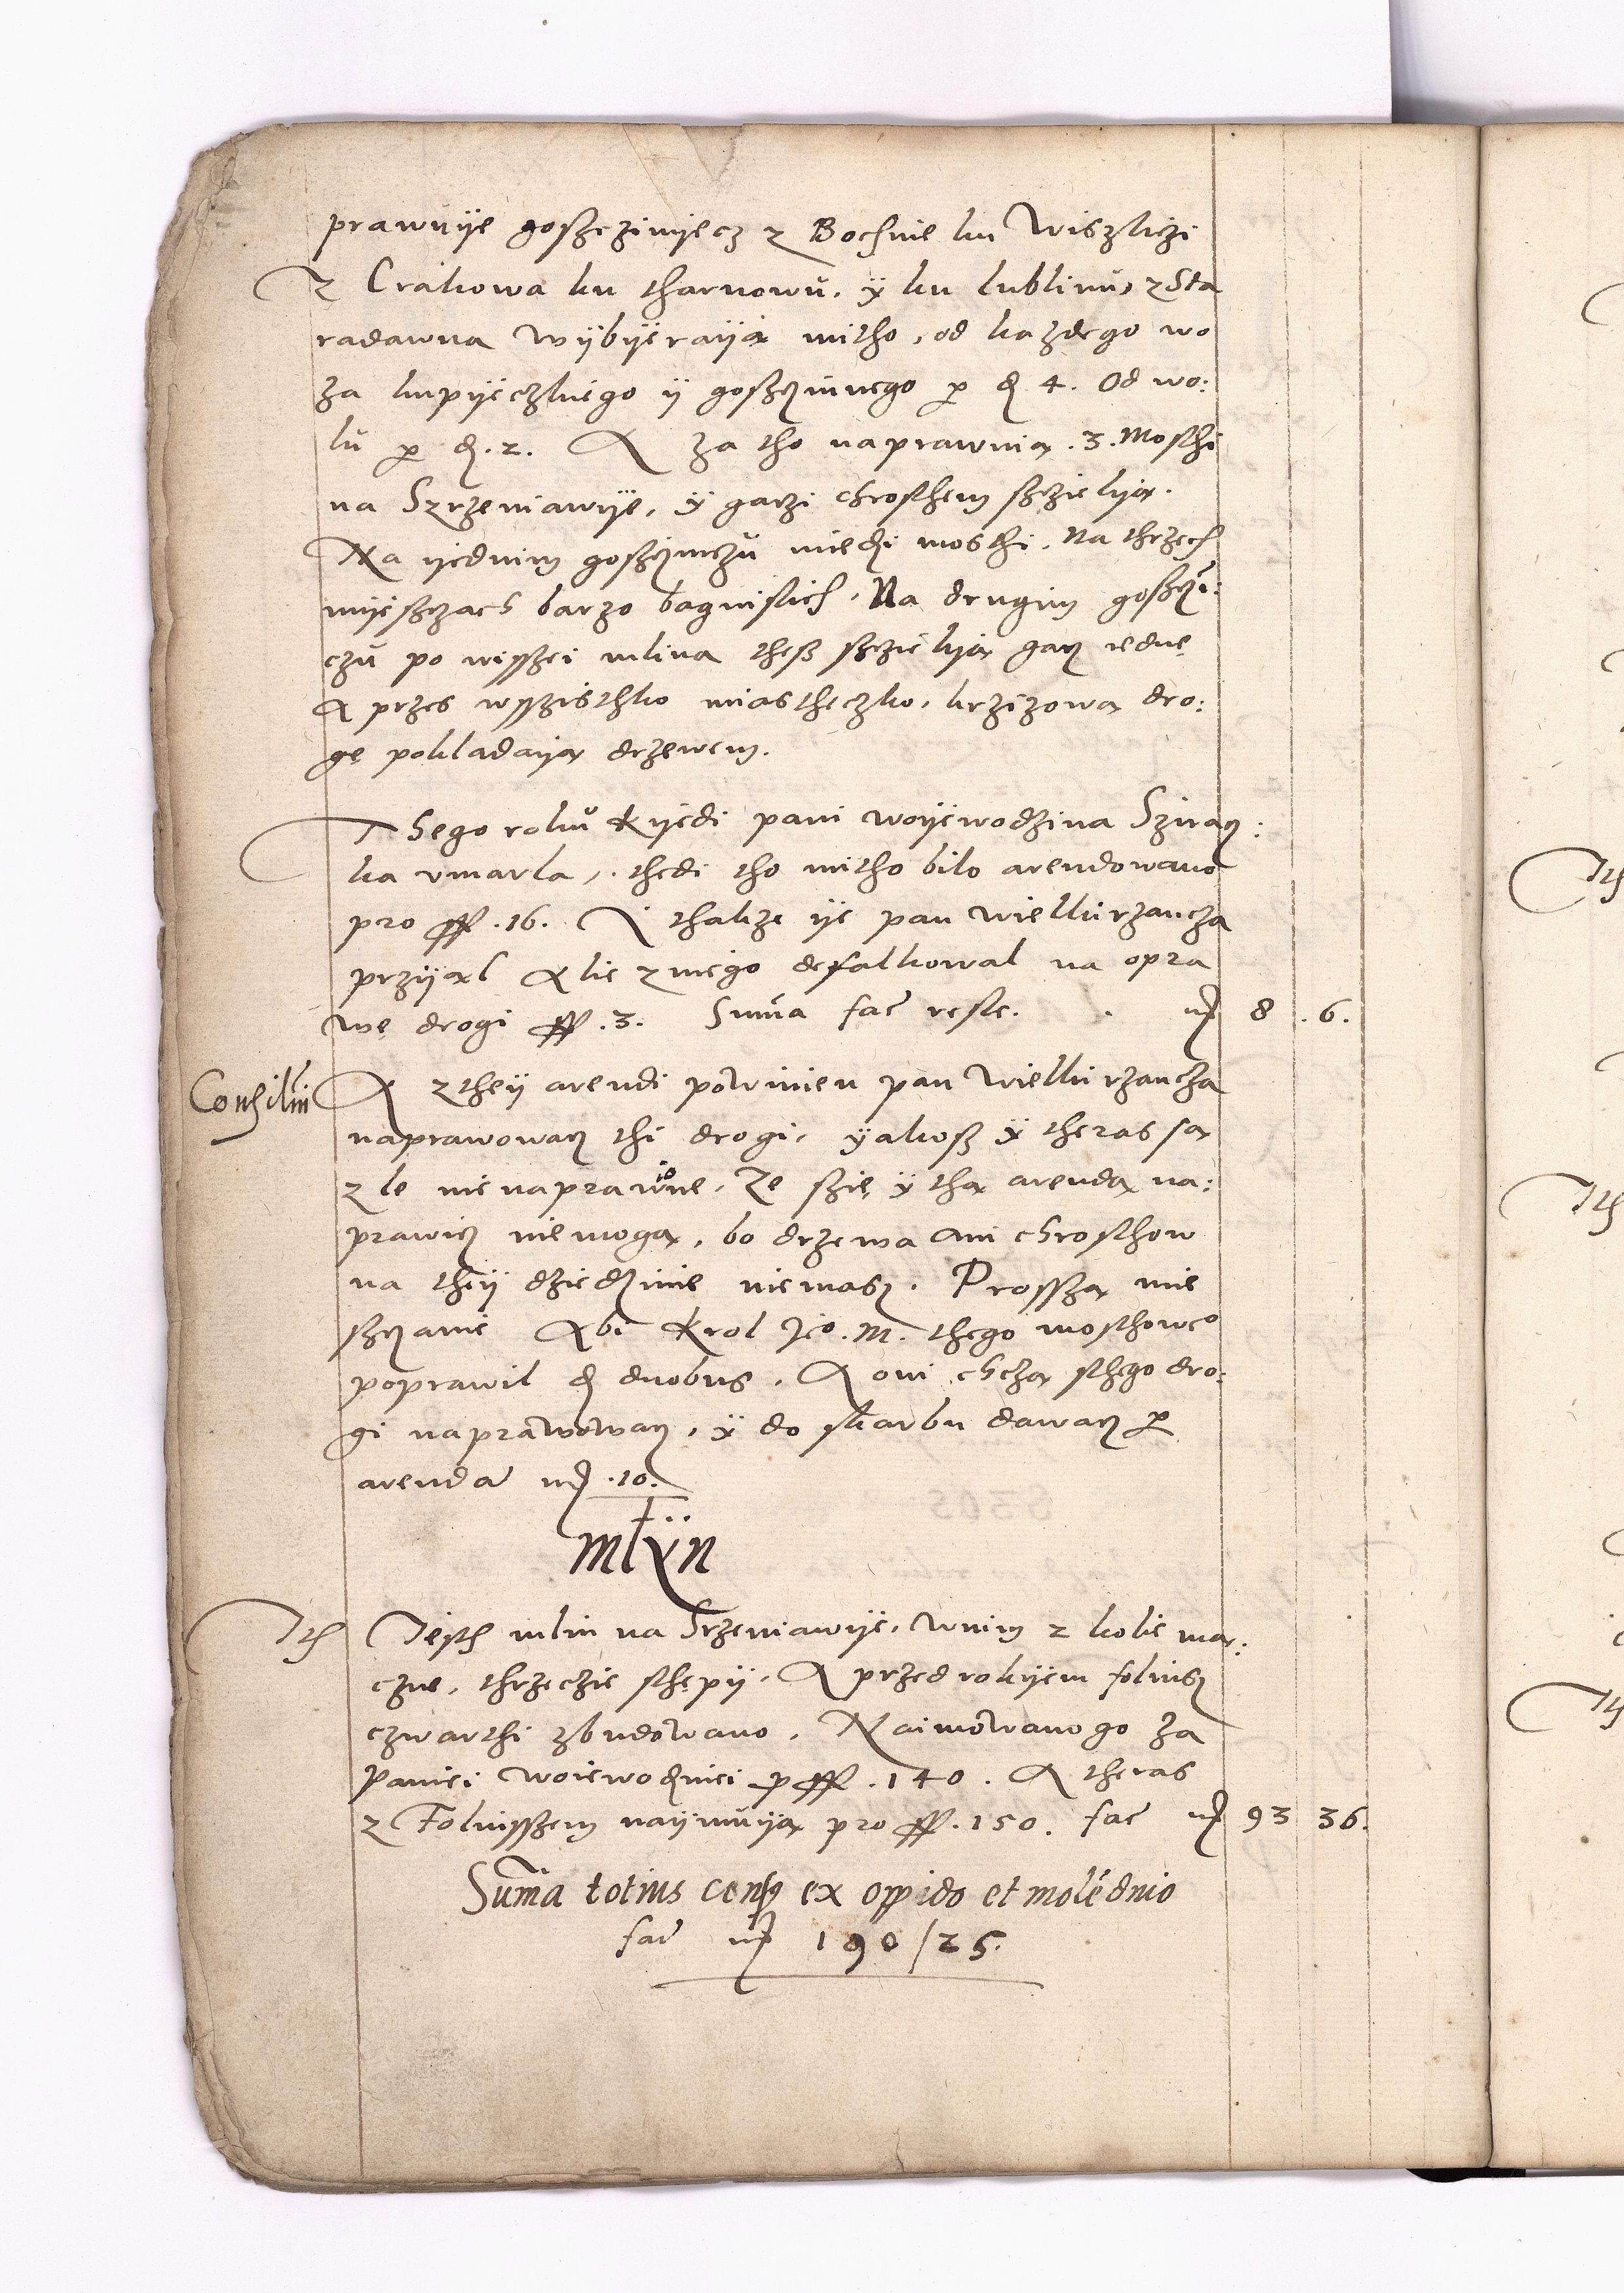 prawuÿe gosczinÿecz z Bochnie ku Wiszliczi
Z Crakowa ku tharnowu, ÿ ku lublinu, z Sta
radawna wÿbÿeraÿą mitho, od kazdego wo
za kupÿeczkiego ÿ goszczinnego per d. 4. Od wo:
lu per d. 2. A za tho naprawuią .3. Mosthi
na Szrzeniawÿe, ÿ gaczi chrosthem szczielÿą.
Na ÿednim gosczinczu miedzi mosthi, Na thrzech
mÿesczach barzo bagnistich, Na drugim goszczi:
czu po wisszei mlina thesz szczielÿą gacz iednę
A przes wsszisthko miastheczko, krzizową dro:
gę pokladaÿą drzewem.
Thego roku kÿedi pani woÿewodzina Sziracz:
ka vmarla, thedi tho mitho bilo arendowano
pro ff .16. A thakze ÿe pan wielkirzancza
prziÿąl Alie z niego defalkowal na opra
wę drogi ff .3. Summa fac reste. mr 8 .6.
Consiliu
A z theÿ arendi powinien pan wielkirzancza
naprawowacz thi drogi, ÿakosz ÿ theras są
zle nienaprawione, Ze szię ÿ thą arendą na:
prawicz niemogą, bo drzewa ani chrosthow
na theÿ dziedzinie niemasz. Prosszą mie
sczanie Abi Krol Jeo. M. thego mosthoweo
poprawil d duobus, A oni chczą sthego dro:
gi naprawowacz, ÿ do skarbu dawacz per
arenda mr .10.
młÿn
Ith Jesth mlin na Srzeniawÿe, wnim z kolie mą:
czne, thrzeczie sthępÿ, A przed rokÿem folusz
czwarthi zbudowano, Naimowano go za
Paniei woiewodzinei p ff .140. A theras
z Folusszem naÿmuÿą pro ff .150. fac mr 93 36.
Summa totius census ex oppido et molendino
fac mr 190/25.